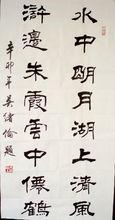 水中明月湖上清風
滸邊朱霞雲中僊鶴
辛卯年吳緒倫題